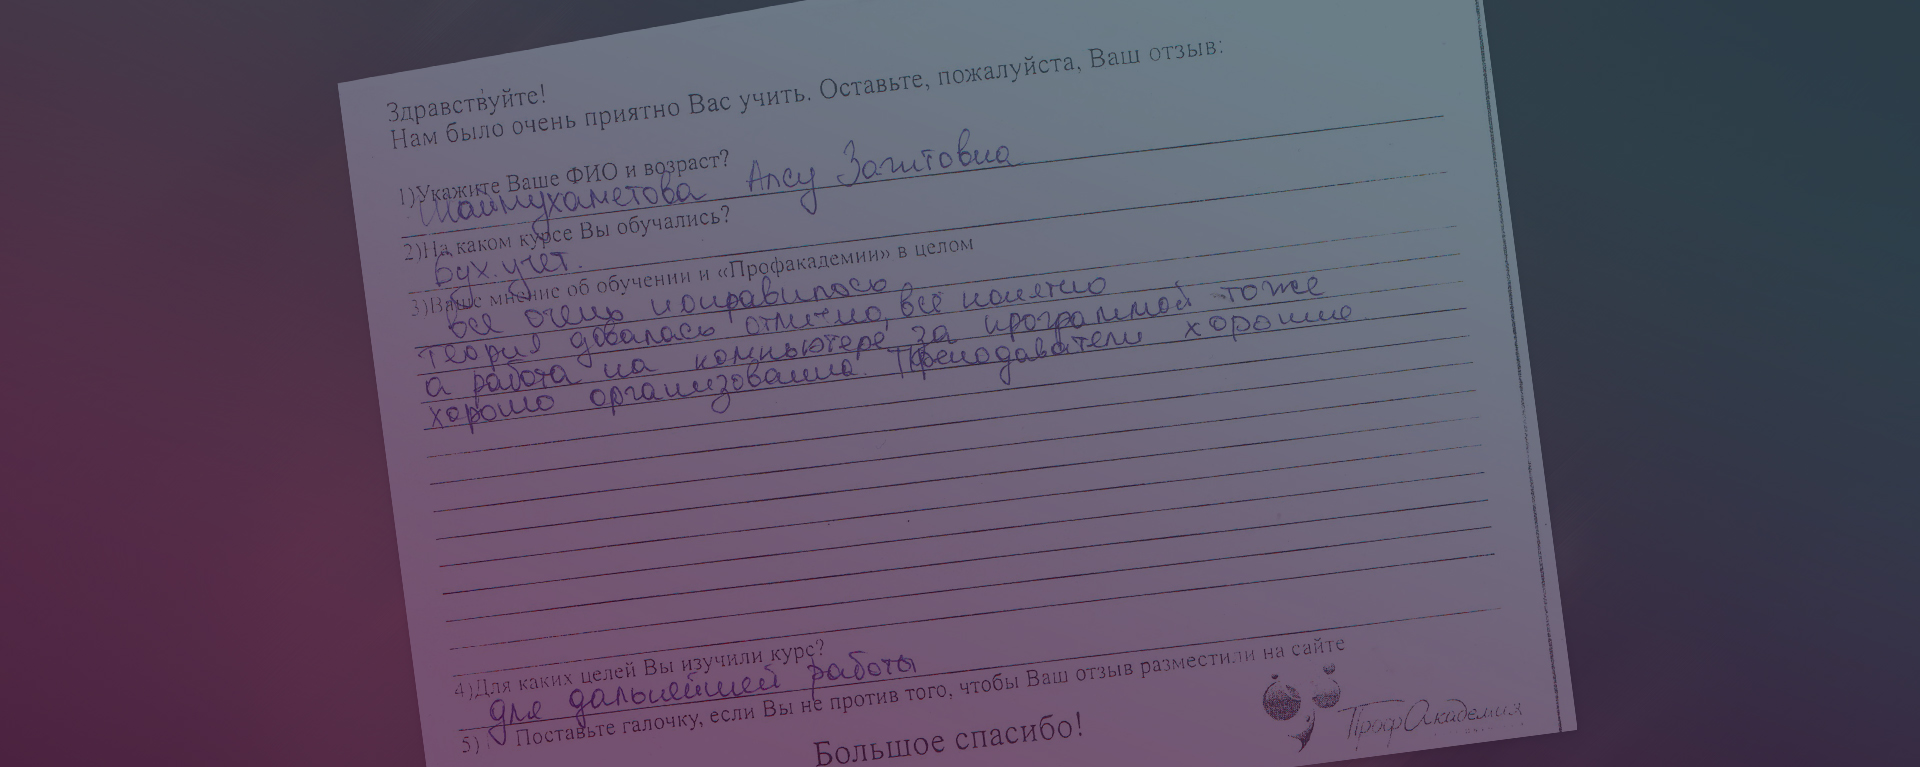 Здравствуйте!
Нам было очень приятно Вас учить. Оставьте, пожалуйста, Ваш отзыв:
1)Укажите Ваше ФИО и возраст?
Шаймухаметова Алсу Загитовна
2)На каком курсе Вы обучались?
Бух. учет.
3)Ваше мнение об обучении и «Профакадемии» в целом
все очень понравилось
теория довалась отлично, всё понятно
а работа на компьютере за программой тоже
хорошо организованна. Преподаватели хорошие
4)Для каких целей Вы изучили курс?
для дальнейшей работы
5) Поставьте галочку, если Вы не против того, чтобы Ваш отзыв разместили на сайте
Большое спасибо!
ПрофАкадемия